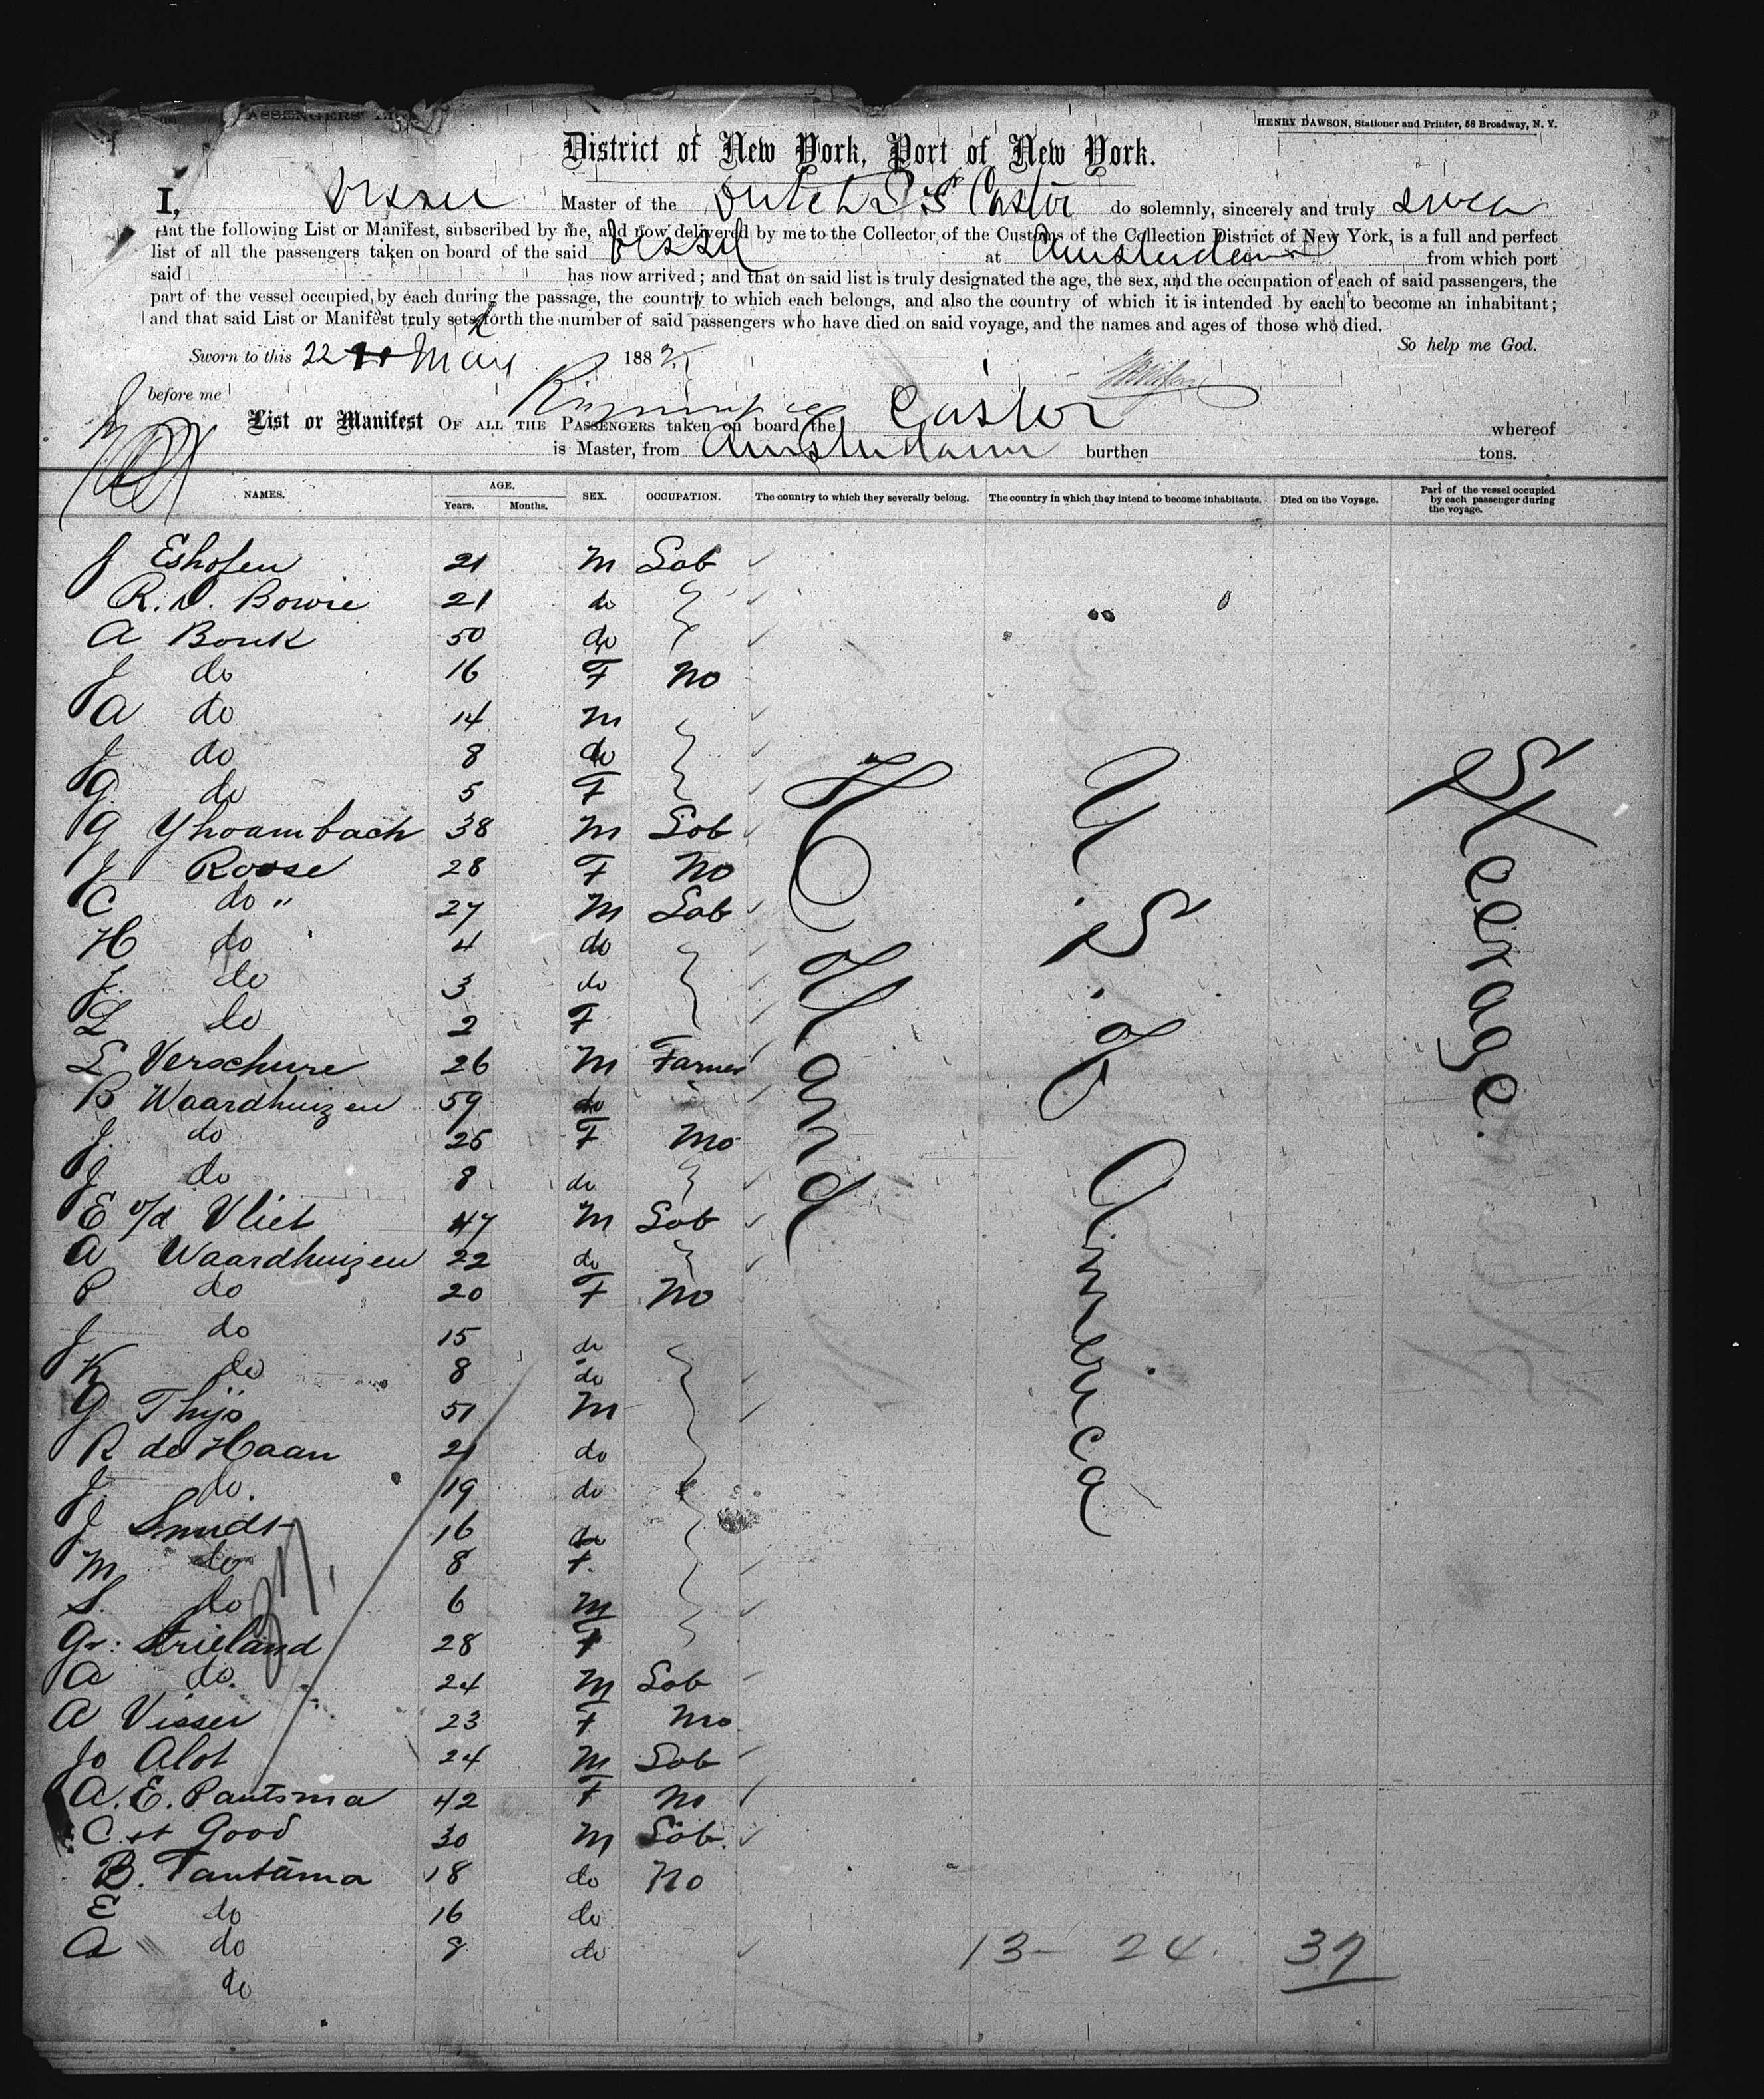 PASSENGERS' LIST
HENRY DAWSON, Stationer and Printer, 58 Broadway, N. Y.
District of New York, Port of New York.
I, Visser Master of the Dutch S S Castor do solemnly, sincerely and truly swear
that the following List or Manifest, subscribed by me, and now delivered by me to the Collector of the Customs of the Collection District of New York, is a full and perfect
list of all the passengers taken on board of the said Vessel at Amsterdam from which port
said has now arrived; and that on said list is truly designated the age, the sex, and the occupation of each of said passengers, the
part of the vessel occupied by each during the passage, the country to which each belongs, and also the country of which it is intended by each to become an inhabitant;
and that said List or Manifest truly sets forth the number of said passengers who have died on said voyage, and the names and ages of those who died.
So help me God.
Sworn to this 22 May 188
before me
List or Manifest OF ALL THE PASSENGERS taken on board the Castor whereof
is Master, from Amsterdam burthen tons.
NAMES. AGE. Years. Months. SEX. OCCUPATION. The country to which they severally belong. The country in which they intend to become inhabitants. Died on the Voyage. Part of the vessel occupied by each passenger during the voyage.
J Eshofen 21 M Lab
R. D. Bowie 21 do
A Bouk 50 do
J do 16 F No
A do 14 M
J do 8 do
G. do 5 F
G Yhoambach 38 M Lab
J Roose 28 F No
C do " 27 M Lab
H do 4 do
J. do 3 do
L do 2 F
L Verschure 26 M Farmer
B Waardhuizen 59 do
J. do 25 F No
J do 8 do
E v/d Vliet 47 M Lab
A Waardhuizen 22 do
P do 20 F No
J do 15 do
K do 8 do
G Thijs 51 M
R de Haan 21 do
J. do. 19 do
J Smidt 16 do
M do 8 F.
S. do 6 M
Gr: Strieland 28 F
A do. 24 M Lab
A Visser 23 F No
Jo Alot 24 M Lab
A. E. Pautsma 42 F No
C. et Good 30 M Lab.
B. Tautsma 18 do No
E do 16 do
A do 8 do
do
Holland
U. S. of America
Steerage.
37,
13- 24. 37